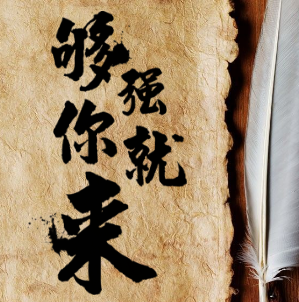 够强就
你来